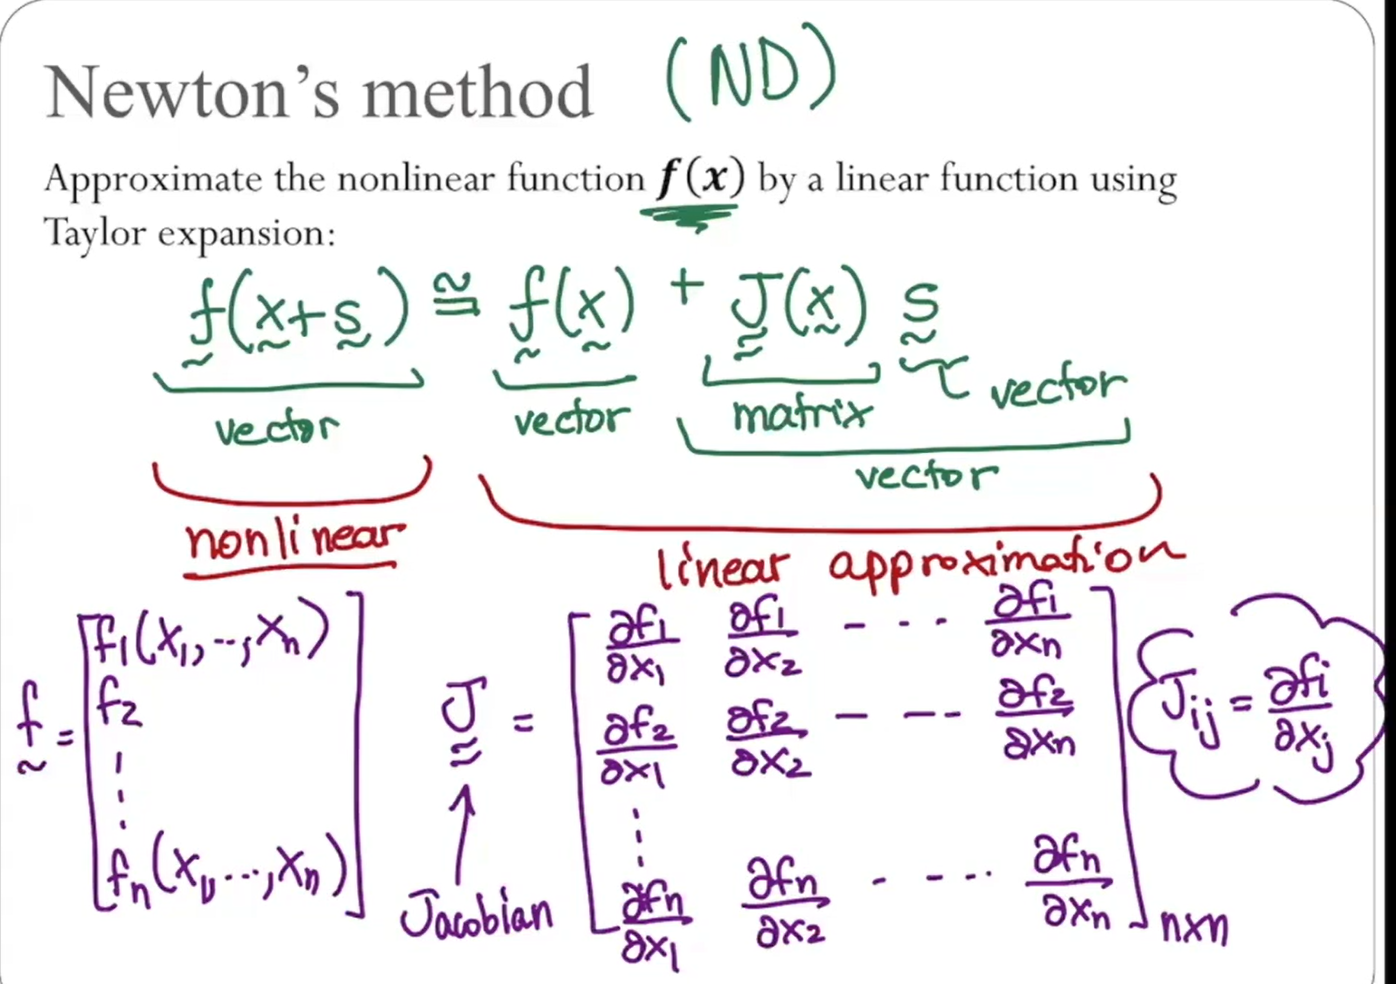 Newton's method (ND)
Approximate the nonlinear function f(x) by a linear function using
Taylor expansion:
f(x+s) ≅ f(x) + J(x) s
vector vector matrix vector
vector
nonlinear linear approximation
f = [f₁(x₁,..,xₙ)
f₂
⋮
fₙ(x₁,...,xₙ)]
J = [∂f₁/∂x₁ ∂f₁/∂x₂ - - - ∂f₁/∂xₙ
∂f₂/∂x₁ ∂f₂/∂x₂ - - - ∂f₂/∂xₙ
⋮
∂fₙ/∂x₁ ∂fₙ/∂x₂ - - - ∂fₙ/∂xₙ] nxn
Jacobian
Jᵢⱼ = ∂fᵢ/∂xⱼ